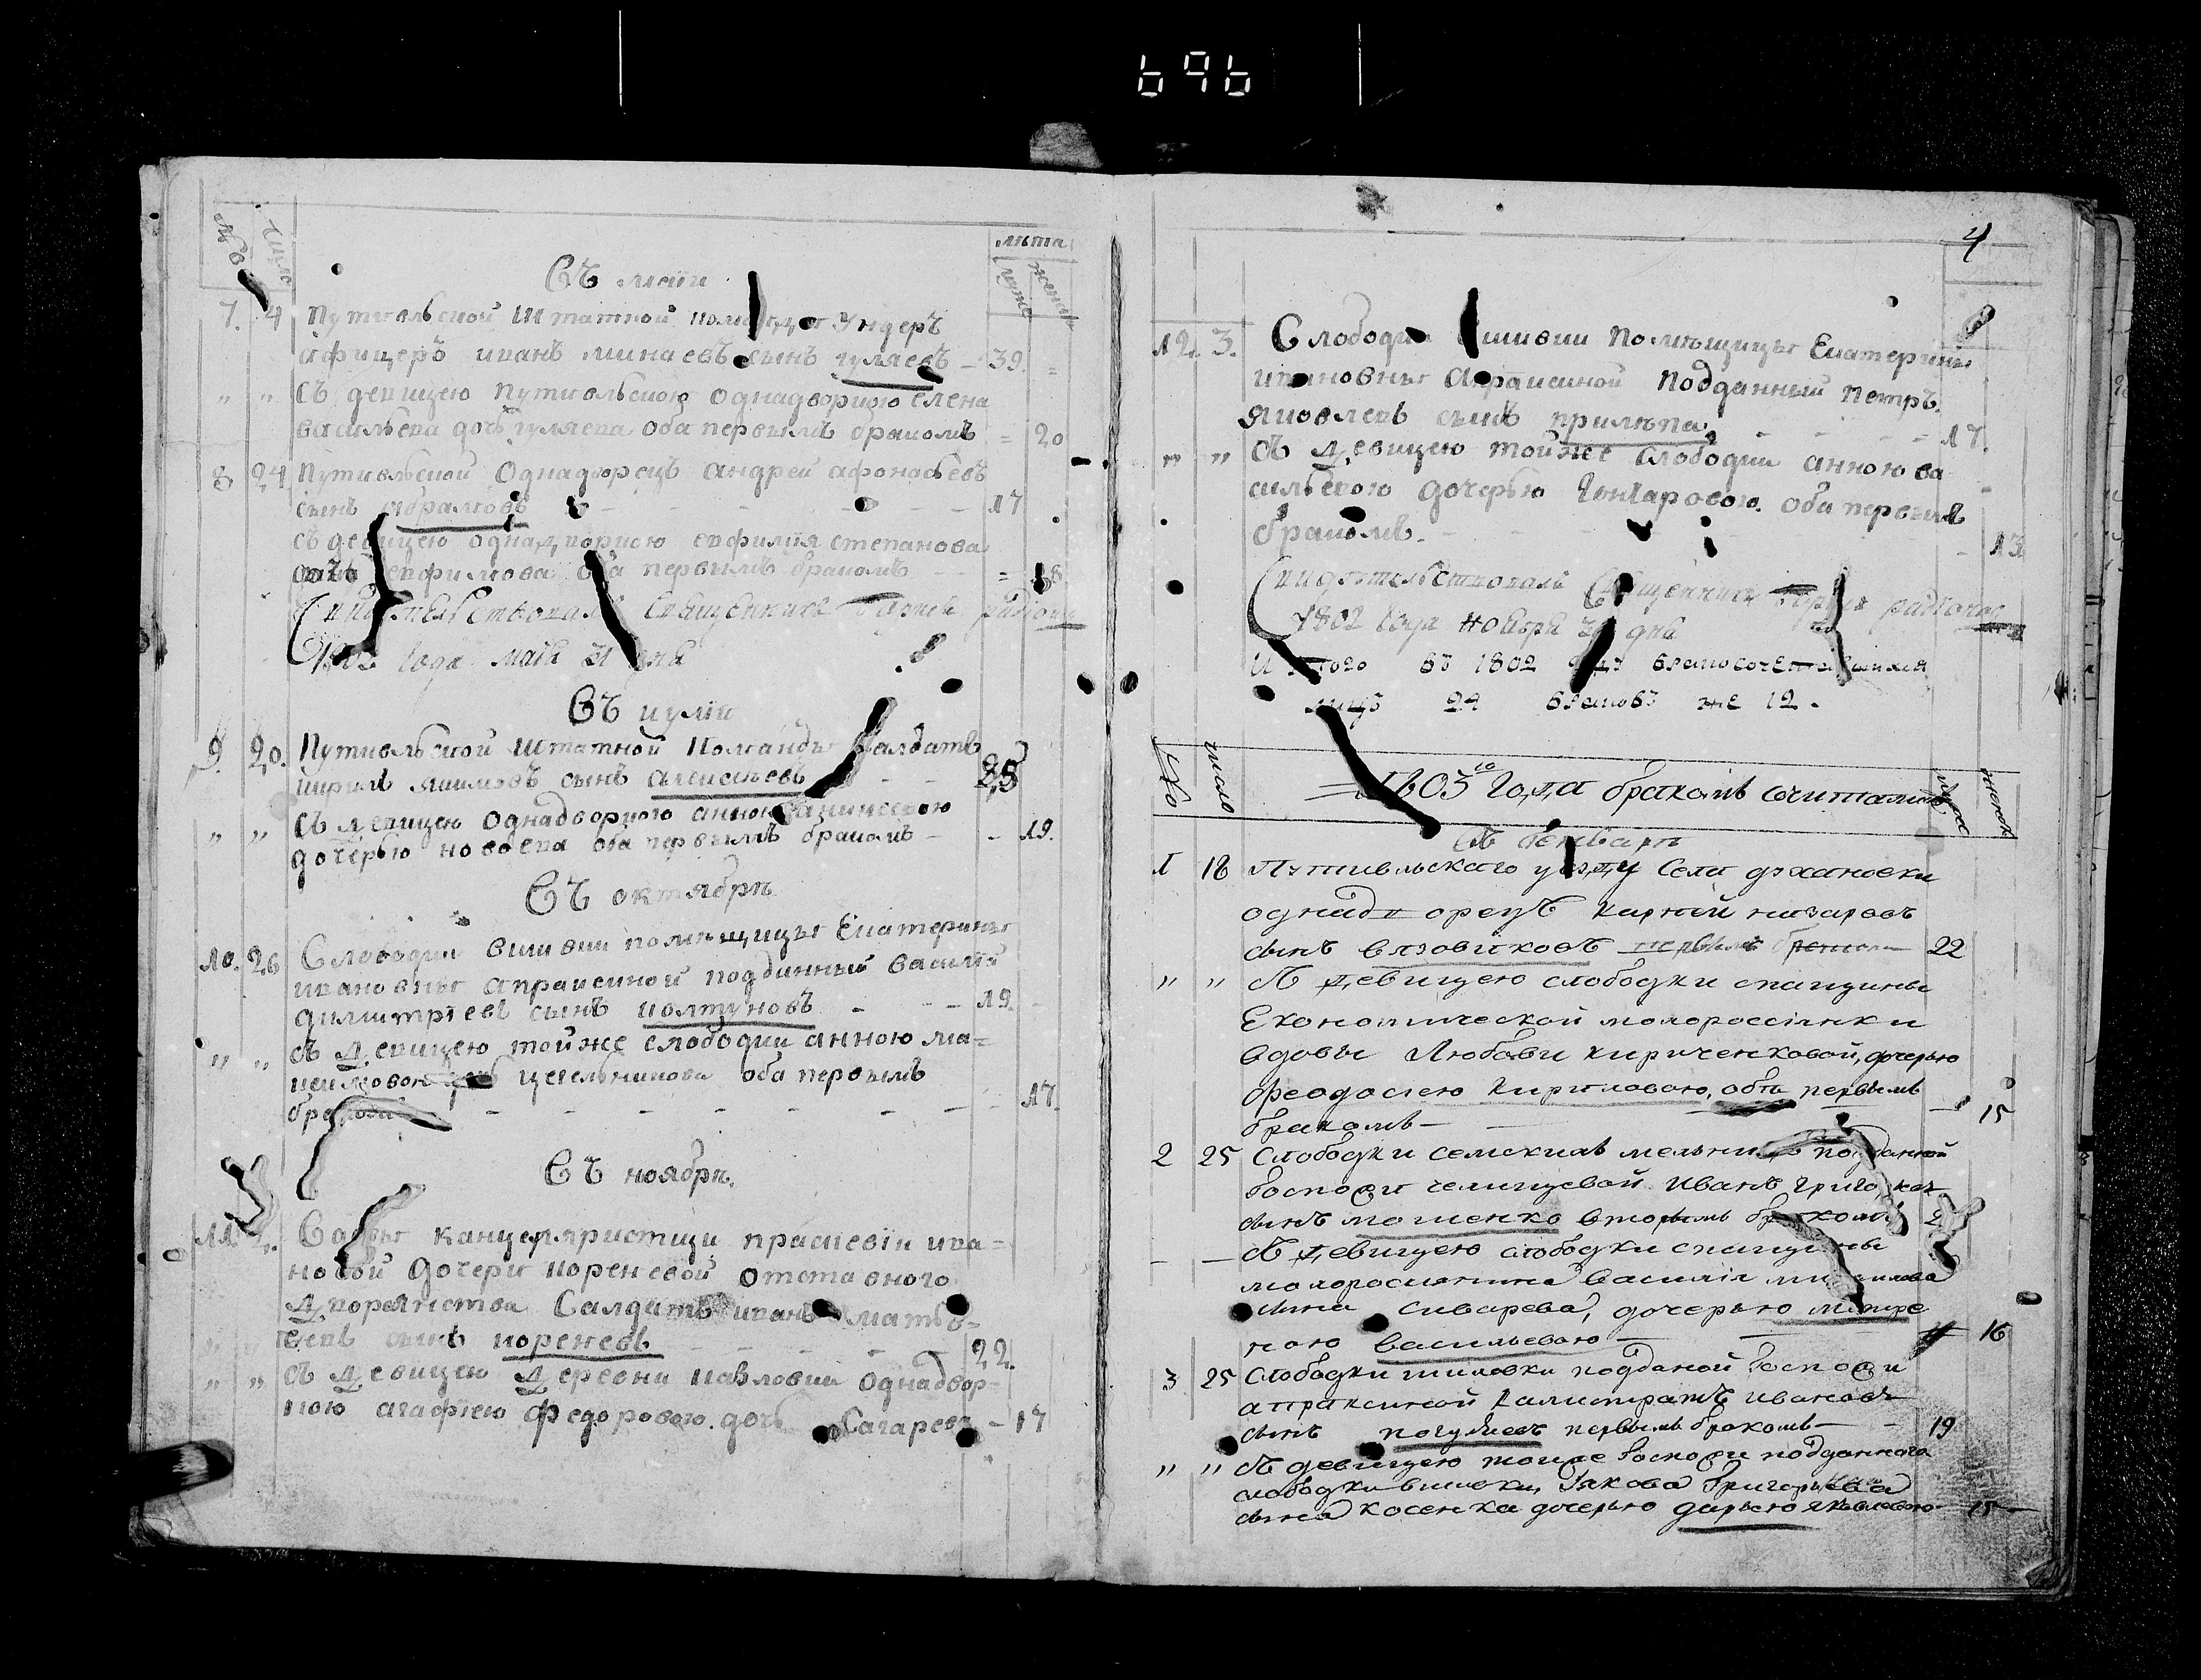 696
№
число
лѣта
мужеск
женск
Въ маiи
7. 4 Путивльской Штатной команды Ундеръ
афицеръ иванъ минаевъ сынъ гуляевъ 39.
" " Съ девицею путивльскою однадворкою елена
васильева дочь гуляева оба первымъ бракомъ = 20
8 24 Путивльской Однадворецъ андрей афонасьевъ
сынъ абрамовъ 17
съ девицею однадворкою евфимiя степанова
евфимова оба первымъ бракомъ = 18
Свидѣтельствовалъ Священникъ
1802 года маiя 31 дня
Въ иулiи
9. 20. Путивльской штатной команды Салдатъ
кирилъ якимовъ сынъ алексѣевъ 25
" " Съ девицею однадворкою анною
дочерью оба первымъ бракомъ 19.
Въ октябрѣ
10. 26 Слободки вишевки помѣщицы Екатерины
ивановны апраксиной подданный василiй
димитрiевъ сынъ колтуновъ 19.
" " съ девицею тойже слободки анною ма=
цегельникова оба первымъ
бракомъ 17.
Въ ноябрѣ.
11. канцеляристши праскевiи ива=
новой дочери кореневой отставного
дворянства Салдатъ иванъ матвѣ=
евъ сынъ кореневъ 22.
" " съ девицею деревни иавловки однадвор=
кою агафiею федоровою. дочь Сагарева 17
4
12. 3. Слободки вишевки помѣщицы Екатерины
ивановны апраксиной подданный петръ
яковлевъ сынъ прилѣпа 17.
" " Съ девицею тойже слободки анною ва
сильевою дочерью гончаровою. оба первымъ
бракомъ. 13
Свидѣтельствовалъ Священникъ
1802 года ноября 30 дня
И того въ 1802 году бракосочетавшихся
лицъ 24 браковъ же 12.
№
число
1803го Года бракомъ сочитались
мужеск
женск
Въ Генварѣ
1 18 Путивльскаго уезду Села духановки
однадворецъ карпѣй назаровъ
сынъ вязовиковъ первымъ браком 22
" " Съ девицею слободки спащины
Економической молоросiянки
вдовы Любави кириченковой, дочерью
феодосiею кириловою, оба первымъ
бракомъ 15
2 25 Слободки семскихъ мельниц подданной
Госпожи челищевой Иванъ
сынъ мошенко вторымъ бракомъ
Съ девицею слободки спащины
молоросиянина василiя
сына сиварева, дочерью матре
ною васильевою 16
3 25 Слободки вишевки подданой Госпожи
апраксиной калистратъ ивановъ
сынъ погуляевъ первымъ бракомъ 19
" " Съ девицею тоиже Госпожи подданнаго
слободки вишевки, Якова Григорьева
сына косенка дочерью дарьею яковлевою 15